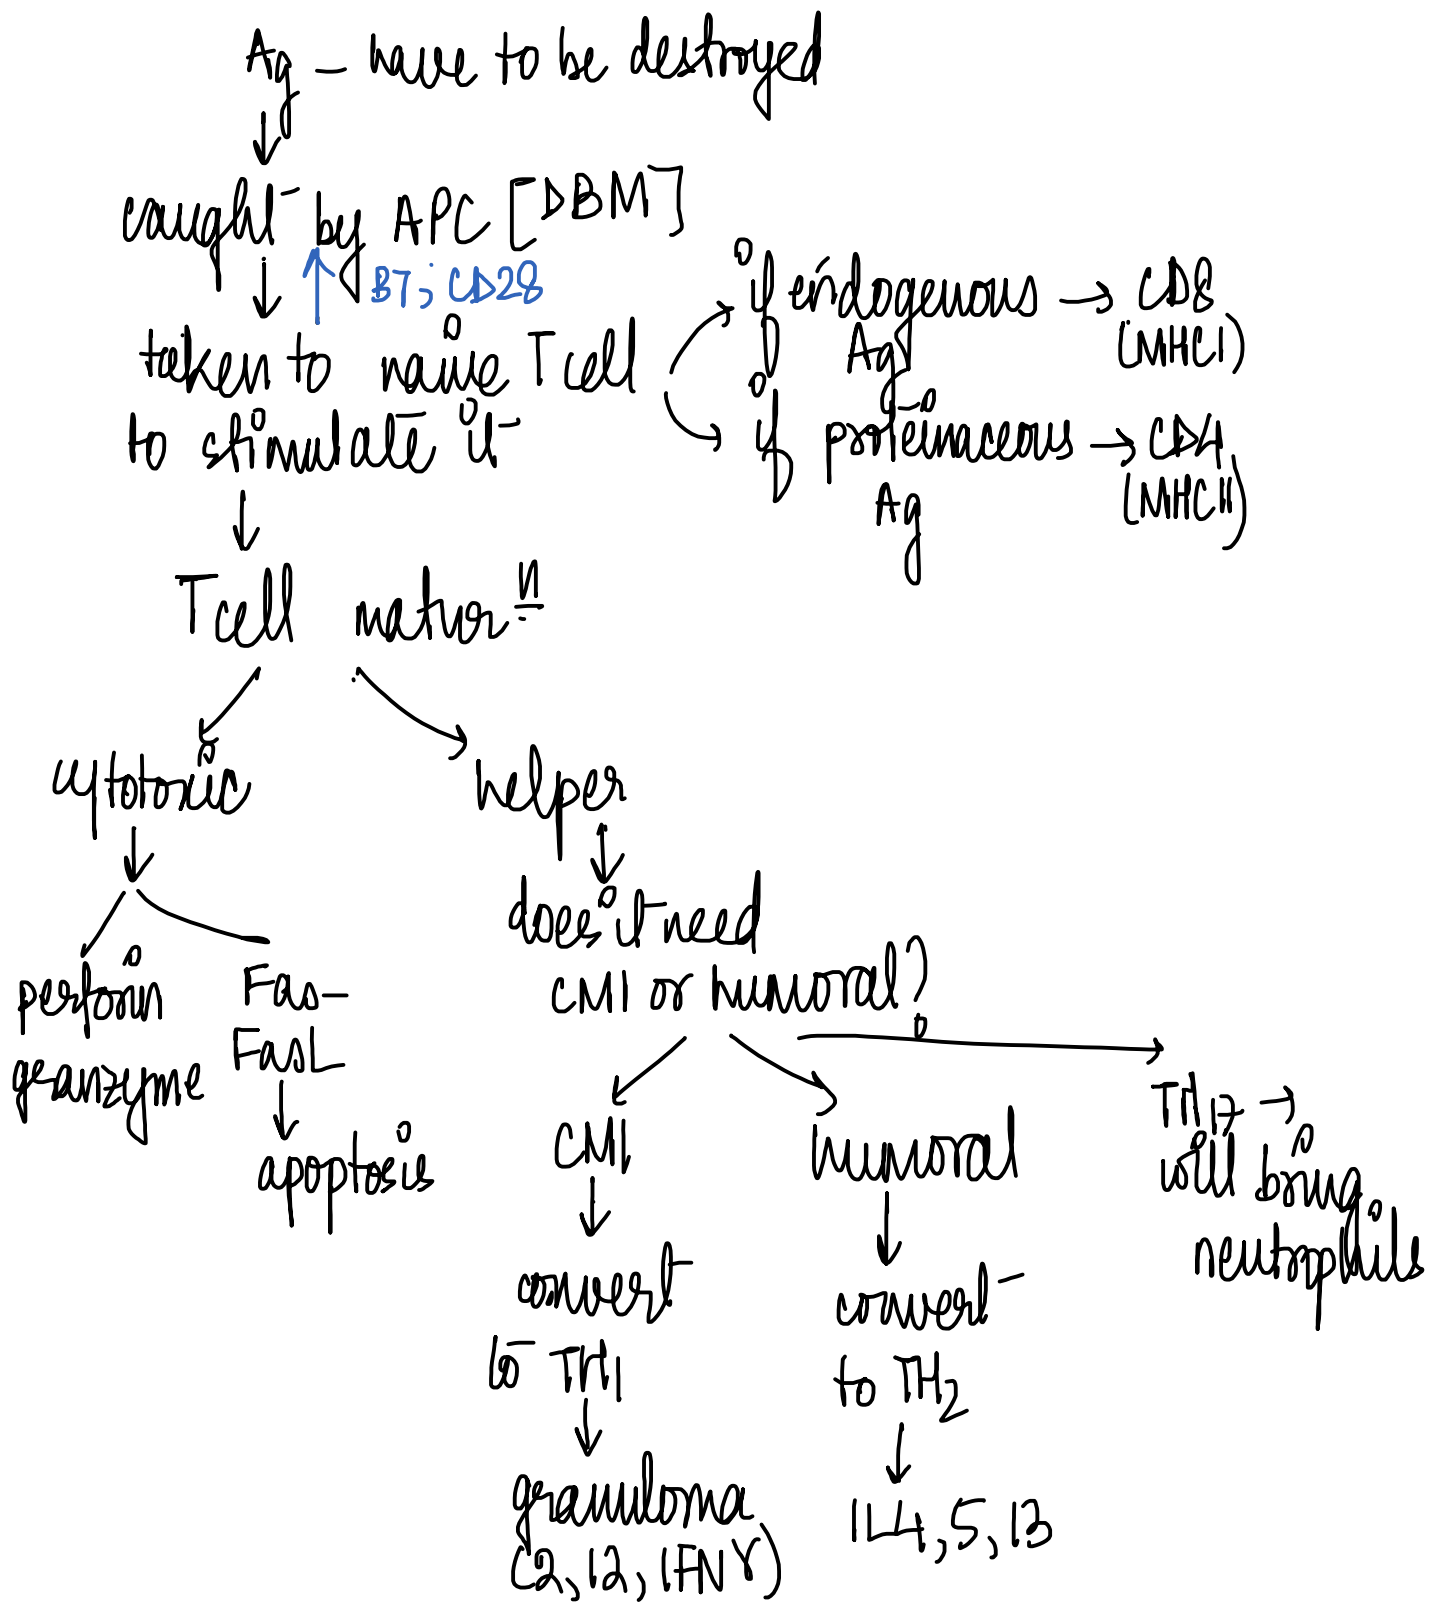 Ag - have to be destroyed
caught by APC [DBM]
B7; CD28
taken to naive T cell
to stimulate it
if endogenous → CD8
Ag (MHC I)
if proteinaceous → CD4
Ag (MHC II)
T cell matur n
cytotoxic
helper
perforin
granzyme
Fas-
FasL
apoptosis
does it need
CMI or humoral?
CMI
convert
to TH1
granuloma
(2, 12, IFN γ)
humoral
convert
to TH2
IL4, 5, 13
TH17 →
will bring
neutrophils